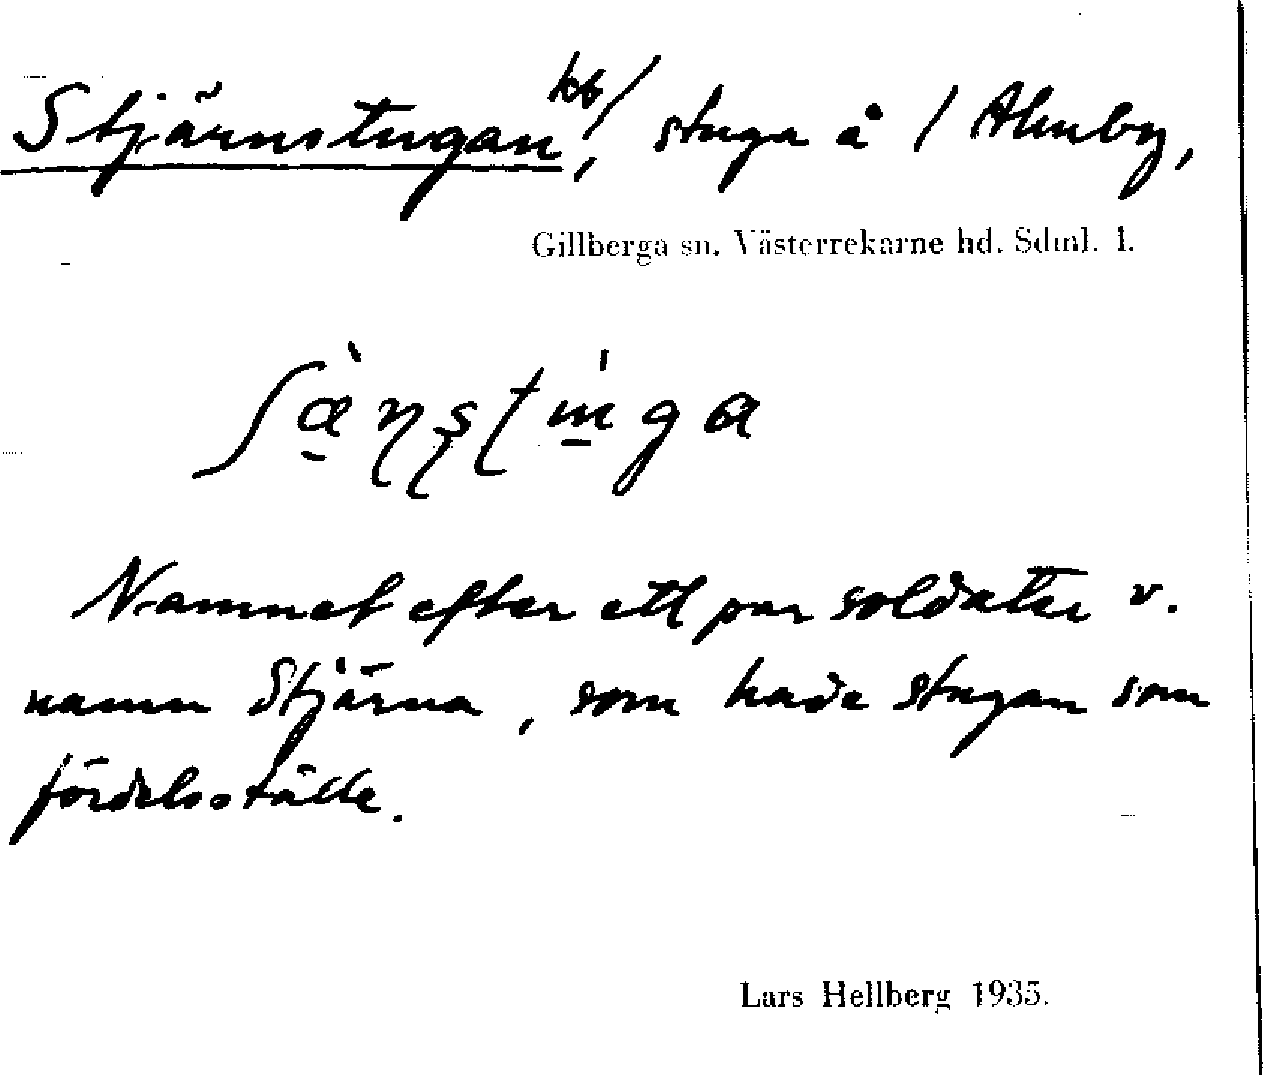 Stjärnstugan, kb/ stuga å / Almby,
Gillberga sn. Västerrekarne hd. Sdml. 1.
Namnet efter ett par soldater v.
namn Stjärna, som hade stugan som
fördelsställe.
Lars Hellberg 1935.